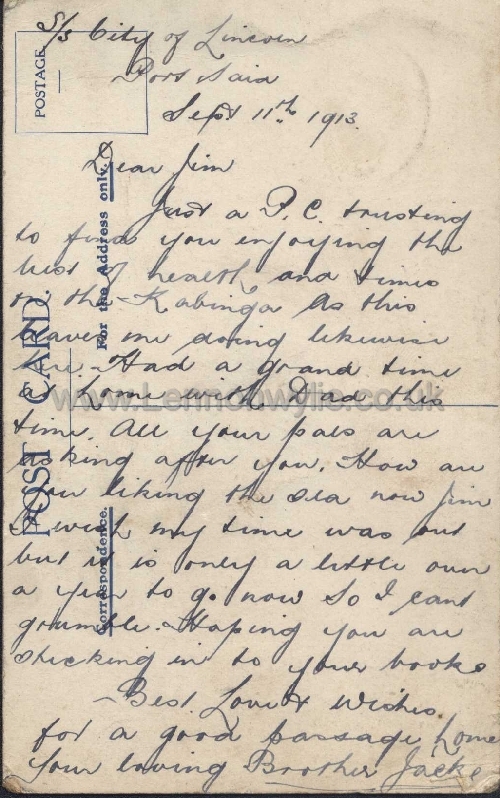 S/S City of Lincoln
Port Said
Sept 11th 1913.
Dear Jim
Just a P.C. trusting
to find you enjoying the
best of health and times
on the Kabinga As this
leaves me doing likewise
here. Had a grand time
at home with Dad this
time. All your pals are
asking after you. How are
you liking the sea now Jim
I wish my time was out
but it is only a little over
a year to go now So I cant
grumble. Hoping you are
sticking in to your books
Best Love & Wishes
for a good passage home
Your loving Brother Jack
POSTAGE
POST CARD.
For the Address only.
Correspondence.
www.Lennonwylie.co.uk